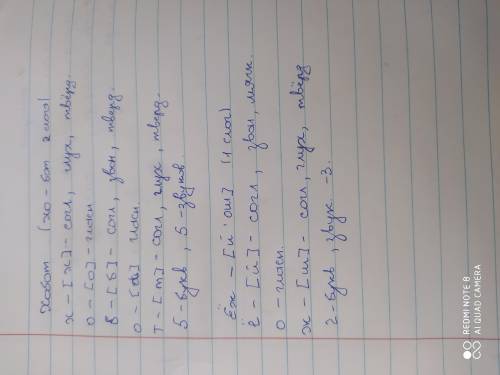 Хобот (хо-бот 2 слога)
х - [х] - согл, глух, твёрд.
о - [о] - гласн.
б - [б] - согл, звон, твёрд.
о - [а] гласн.
т - [т] - согл, глух, твёрд.
5 - букв, 5 - звуков
Ёж - [й'ош] (1 слог)
Ё - [й] - согл, звон, мягк.
о - гласн.
ж - [ш] - согл, глух, твёрд
2 - букв, звук - 3.
REDMI NOTE 8
AI QUAD CAMERA